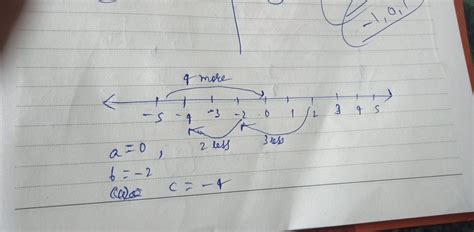 -1, 0, 1
4 more
-5 -4 -3 -2 0 1 2 3 4 5
2 less 3 less
a = 0,
b = -2
c = -4